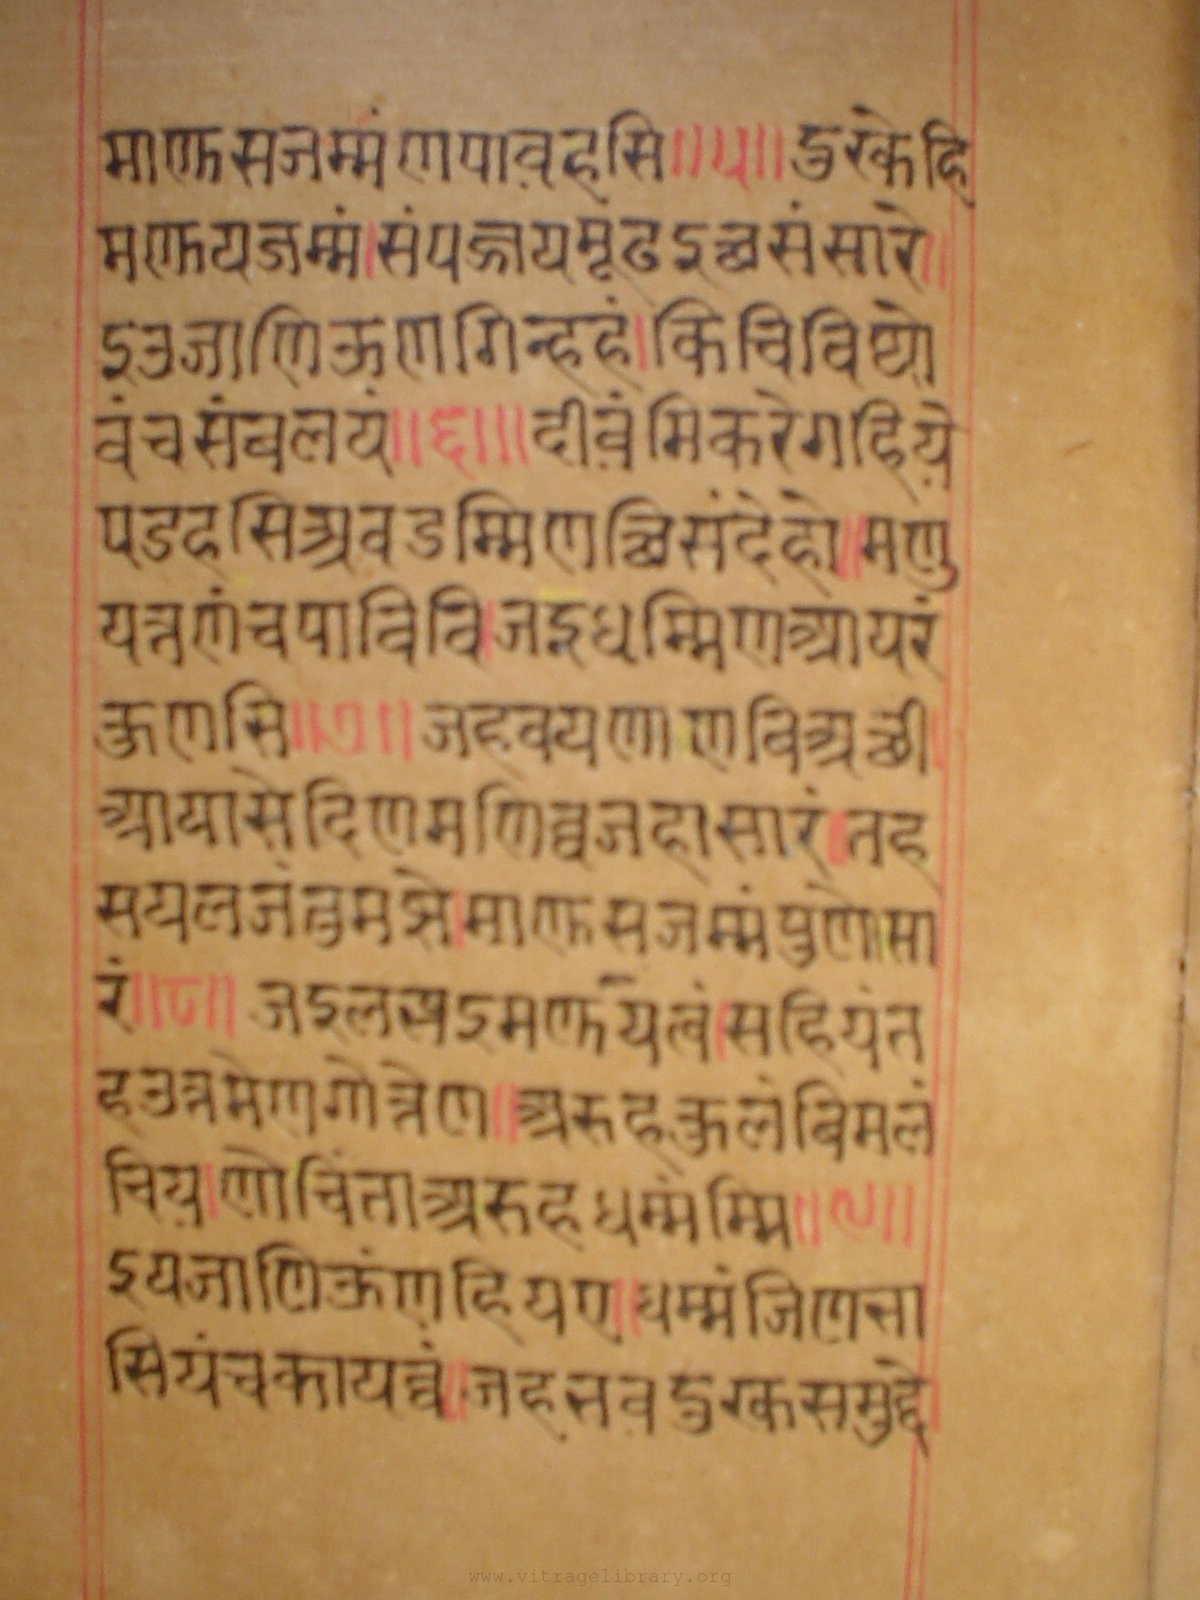 माणुसजम्मं णपावहसि॥५॥ दुरकेहि
मणुयजम्मं।संपज्जयमूढइच्छसंसारे॥
इउजाणिऊणगिन्हहं।किंचिविद्यो
वंचसंबलयं॥६॥दीवंमिकरेगहिये
पडहसिअवडम्मिणत्थिसंदेहो॥मणु
यत्तणंचपाविवि।जइधम्मिणआयरं
कुणसि॥७॥जहवयणाणविअछी
आयासेदिणमणिव्वजहासारं॥तह
सयलजंतुमझे।माणुसजम्मंपुणोसा
रं॥८॥ जइलखइमणुयत्वं।सहियंत
हउत्तमेणगोत्तेण॥अरुहकुलंविमलं
चिय।णोचिंताअरुहधम्मंम्मि॥९॥
इयजाणिऊंणहियए॥धम्मंजिणत्ता
सियंचकायव्वं॥जहतवदुरकसमुद्दे
www.vitragelibrary.org